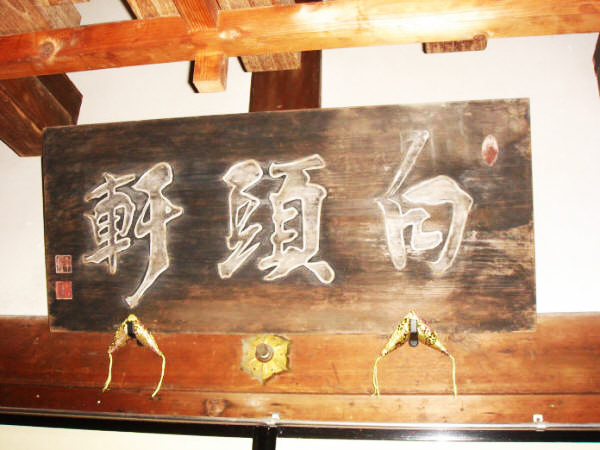 白頭軒